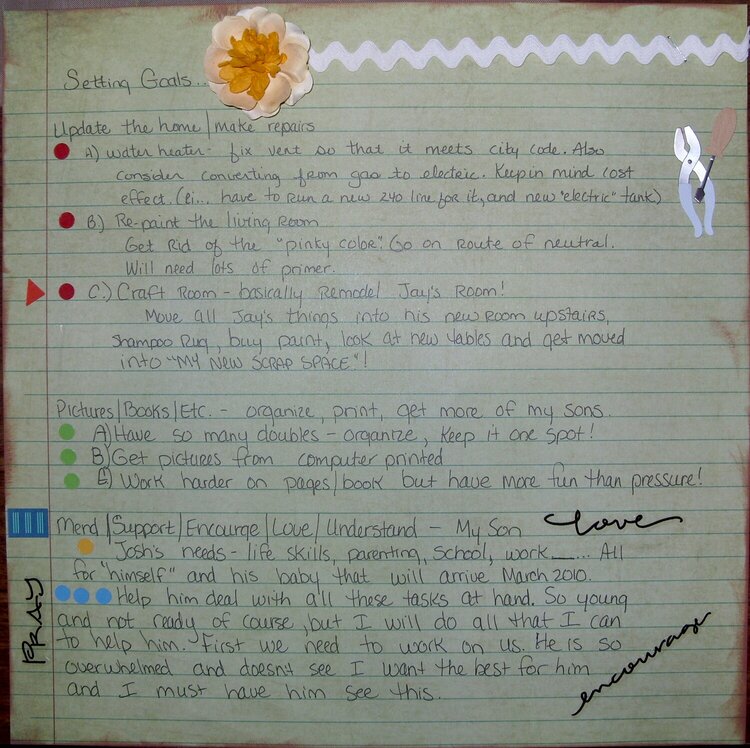 Setting Goals...
Update the home | make repairs
A) water heater - fix vent so that it meets city code. Also
consider converting from gas to electric. Keep in mind cost
effect. (ei... have to run a new 240 line for it, and new "electric" tank)
B.) Re-paint the living Room
Get Rid of the "pinky color". Go on Route of neutral.
Will need lots of primer.
C.) Craft Room - basically Remodel Jay's Room!
Move all Jay's things into his new room upstairs,
shampoo Rug, buy paint, look at new tables and get moved
into "MY NEW SCRAP SPACE"!
Pictures | Books | Etc. - organize, print, get more of my sons.
A) Have so many doubles - organize, keep it one spot!
B) Get pictures from computer printed
E) Work harder on pages | book but have more fun than pressure!
Mend | Support | Encourge | Love | Understand - My Son
Love
Josh's needs - life skills, parenting, school, work___... All
for "himself" and his baby that will arrive March 2010.
PRAY
Help him deal with all these tasks at hand. So young
and not ready of course, but I will do all that I can
to help him. First we need to work on us. He is so
overwhelmed and doesnt see I want the best for him
and I must have him see this.
encourage